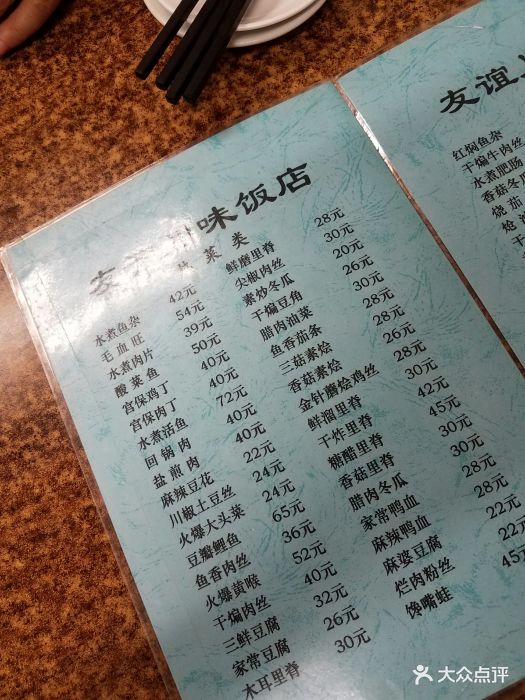 友谊川味饭店
热菜类
水煮鱼杂 42元
毛血旺 54元
水煮肉片 39元
酸菜鱼 50元
宫保鸡丁 40元
宫保肉丁 40元
水煮活鱼 72元
回锅肉 40元
盐煎肉 40元
麻辣豆花 22元
川椒土豆丝 24元
火爆大头菜 24元
豆瓣鲤鱼 65元
鱼香肉丝 36元
火爆黄喉 52元
干煸肉丝 40元
三鲜豆腐 32元
家常豆腐 26元
木耳里脊 30元
鲜磨里脊 28元
尖椒肉丝 30元
素炒冬瓜 20元
干煸豆角 26元
腊肉油菜 30元
鱼香茄条 28元
三菇素烩 28元
香菇素烩 26元
金针蘑烩鸡丝 28元
鲜溜里脊 30元
干炸里脊 42元
糖醋里脊 45元
香菇里脊 30元
腊肉冬瓜 30元
家常鸭血 28元
麻辣鸭血 28元
麻婆豆腐 22元
烂肉粉丝 22元
馋嘴蛙 45元
友谊
红焖鱼杂
干煸牛肉丝
水煮肥肠
香菇冬瓜
烧茄
炝
干
大众点评